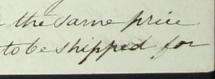 the same price
to be shipped for